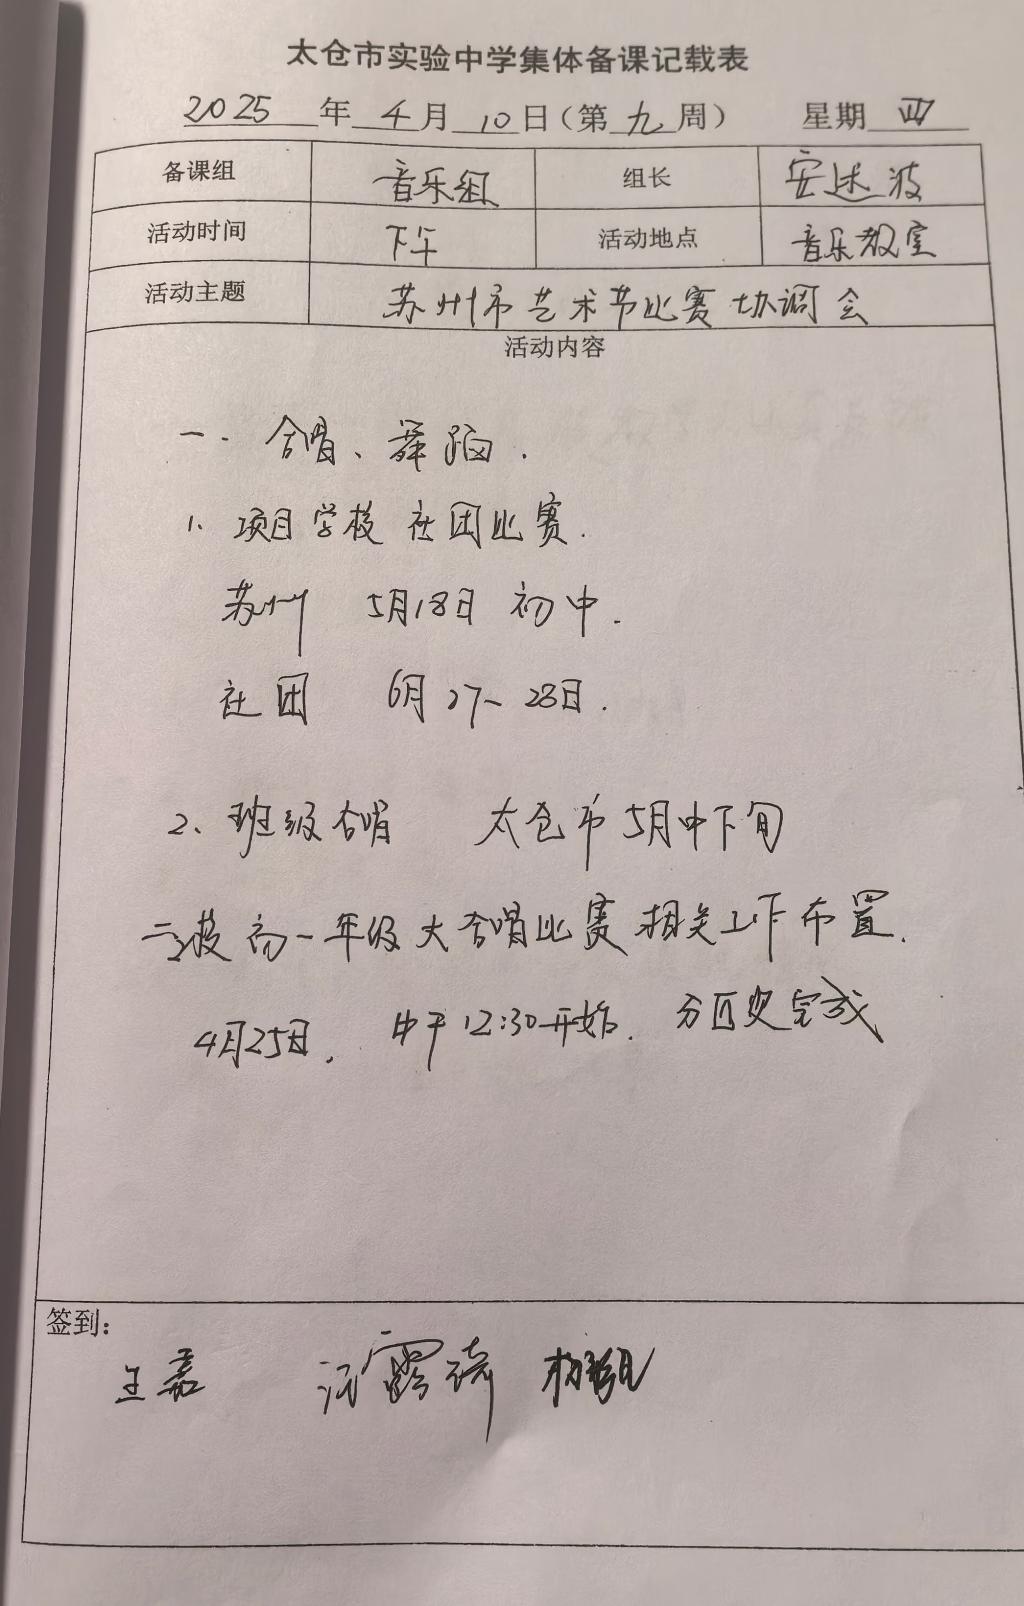 太仓市实验中学集体备课记载表
2025年4月10日(第九周) 星期四
备课组 音乐组 组长 安述波
活动时间 下午 活动地点 音乐教室
活动主题 苏州市艺术节比赛协调会
活动内容
一、合唱、舞蹈.
1、项目学校社团比赛.
苏州 5月18日 初中.
社团 6月27~28日.
2、班级合唱 太仓市5月中下旬
二、校高一年级大合唱比赛相关工作布置.
4月25日. 中午12:30开始. 完成
签到:
王嘉